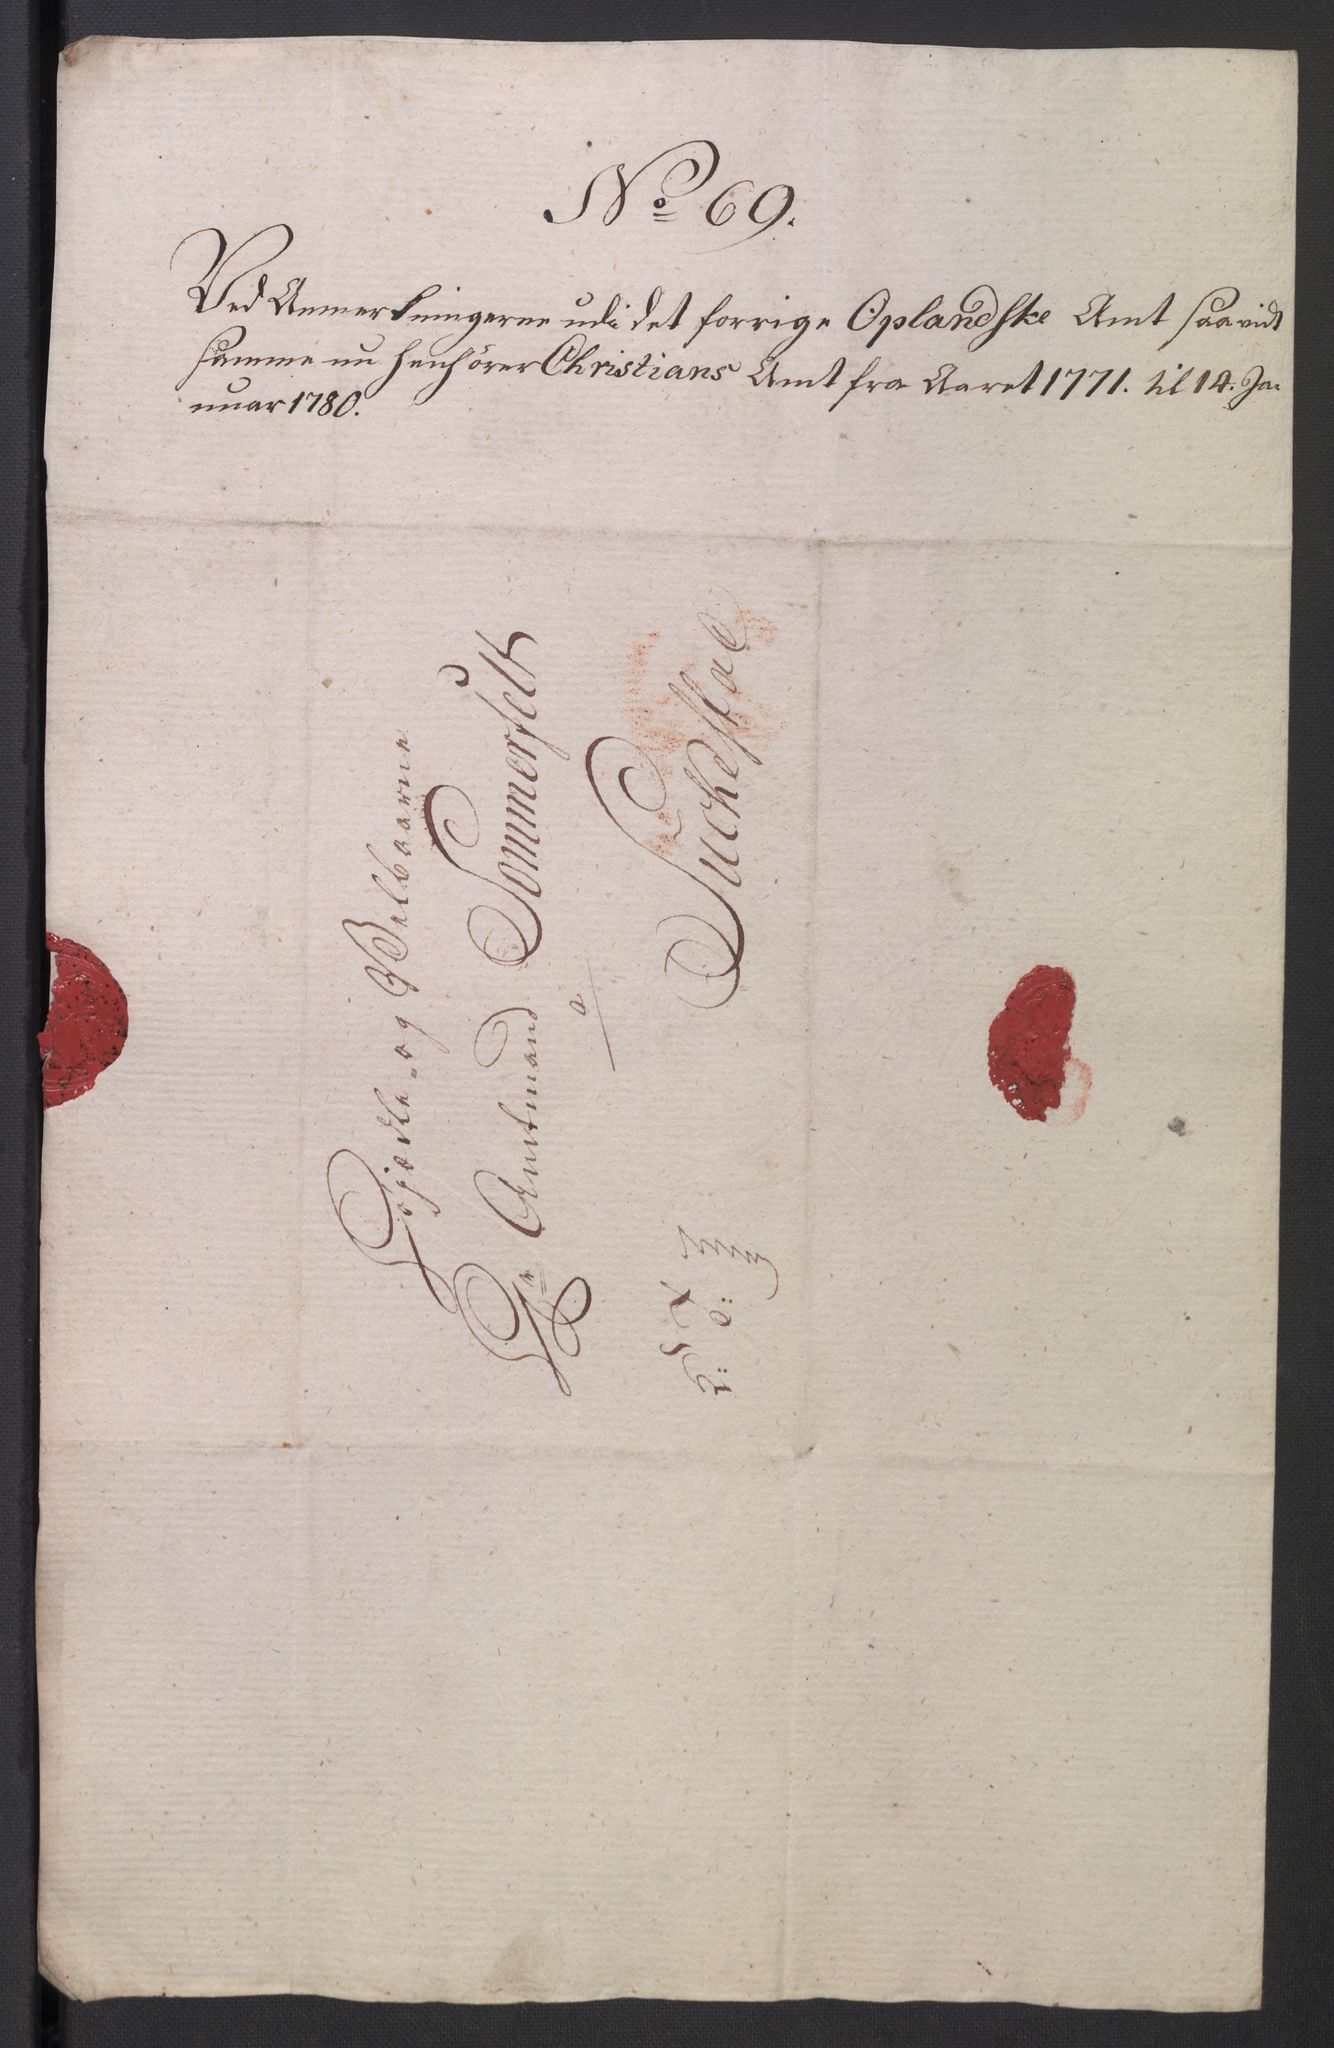 No 69.
Ved Anmerkningerne udi det forrige Oplandske Amt saavidt
samme nu henhörer Christians Amt fra Aaret 1771. til 14. Ja-
nuar 1780.
Höjædle- og Velbaarne
Hr Amtmand Sommerfelt
a
Suckestad